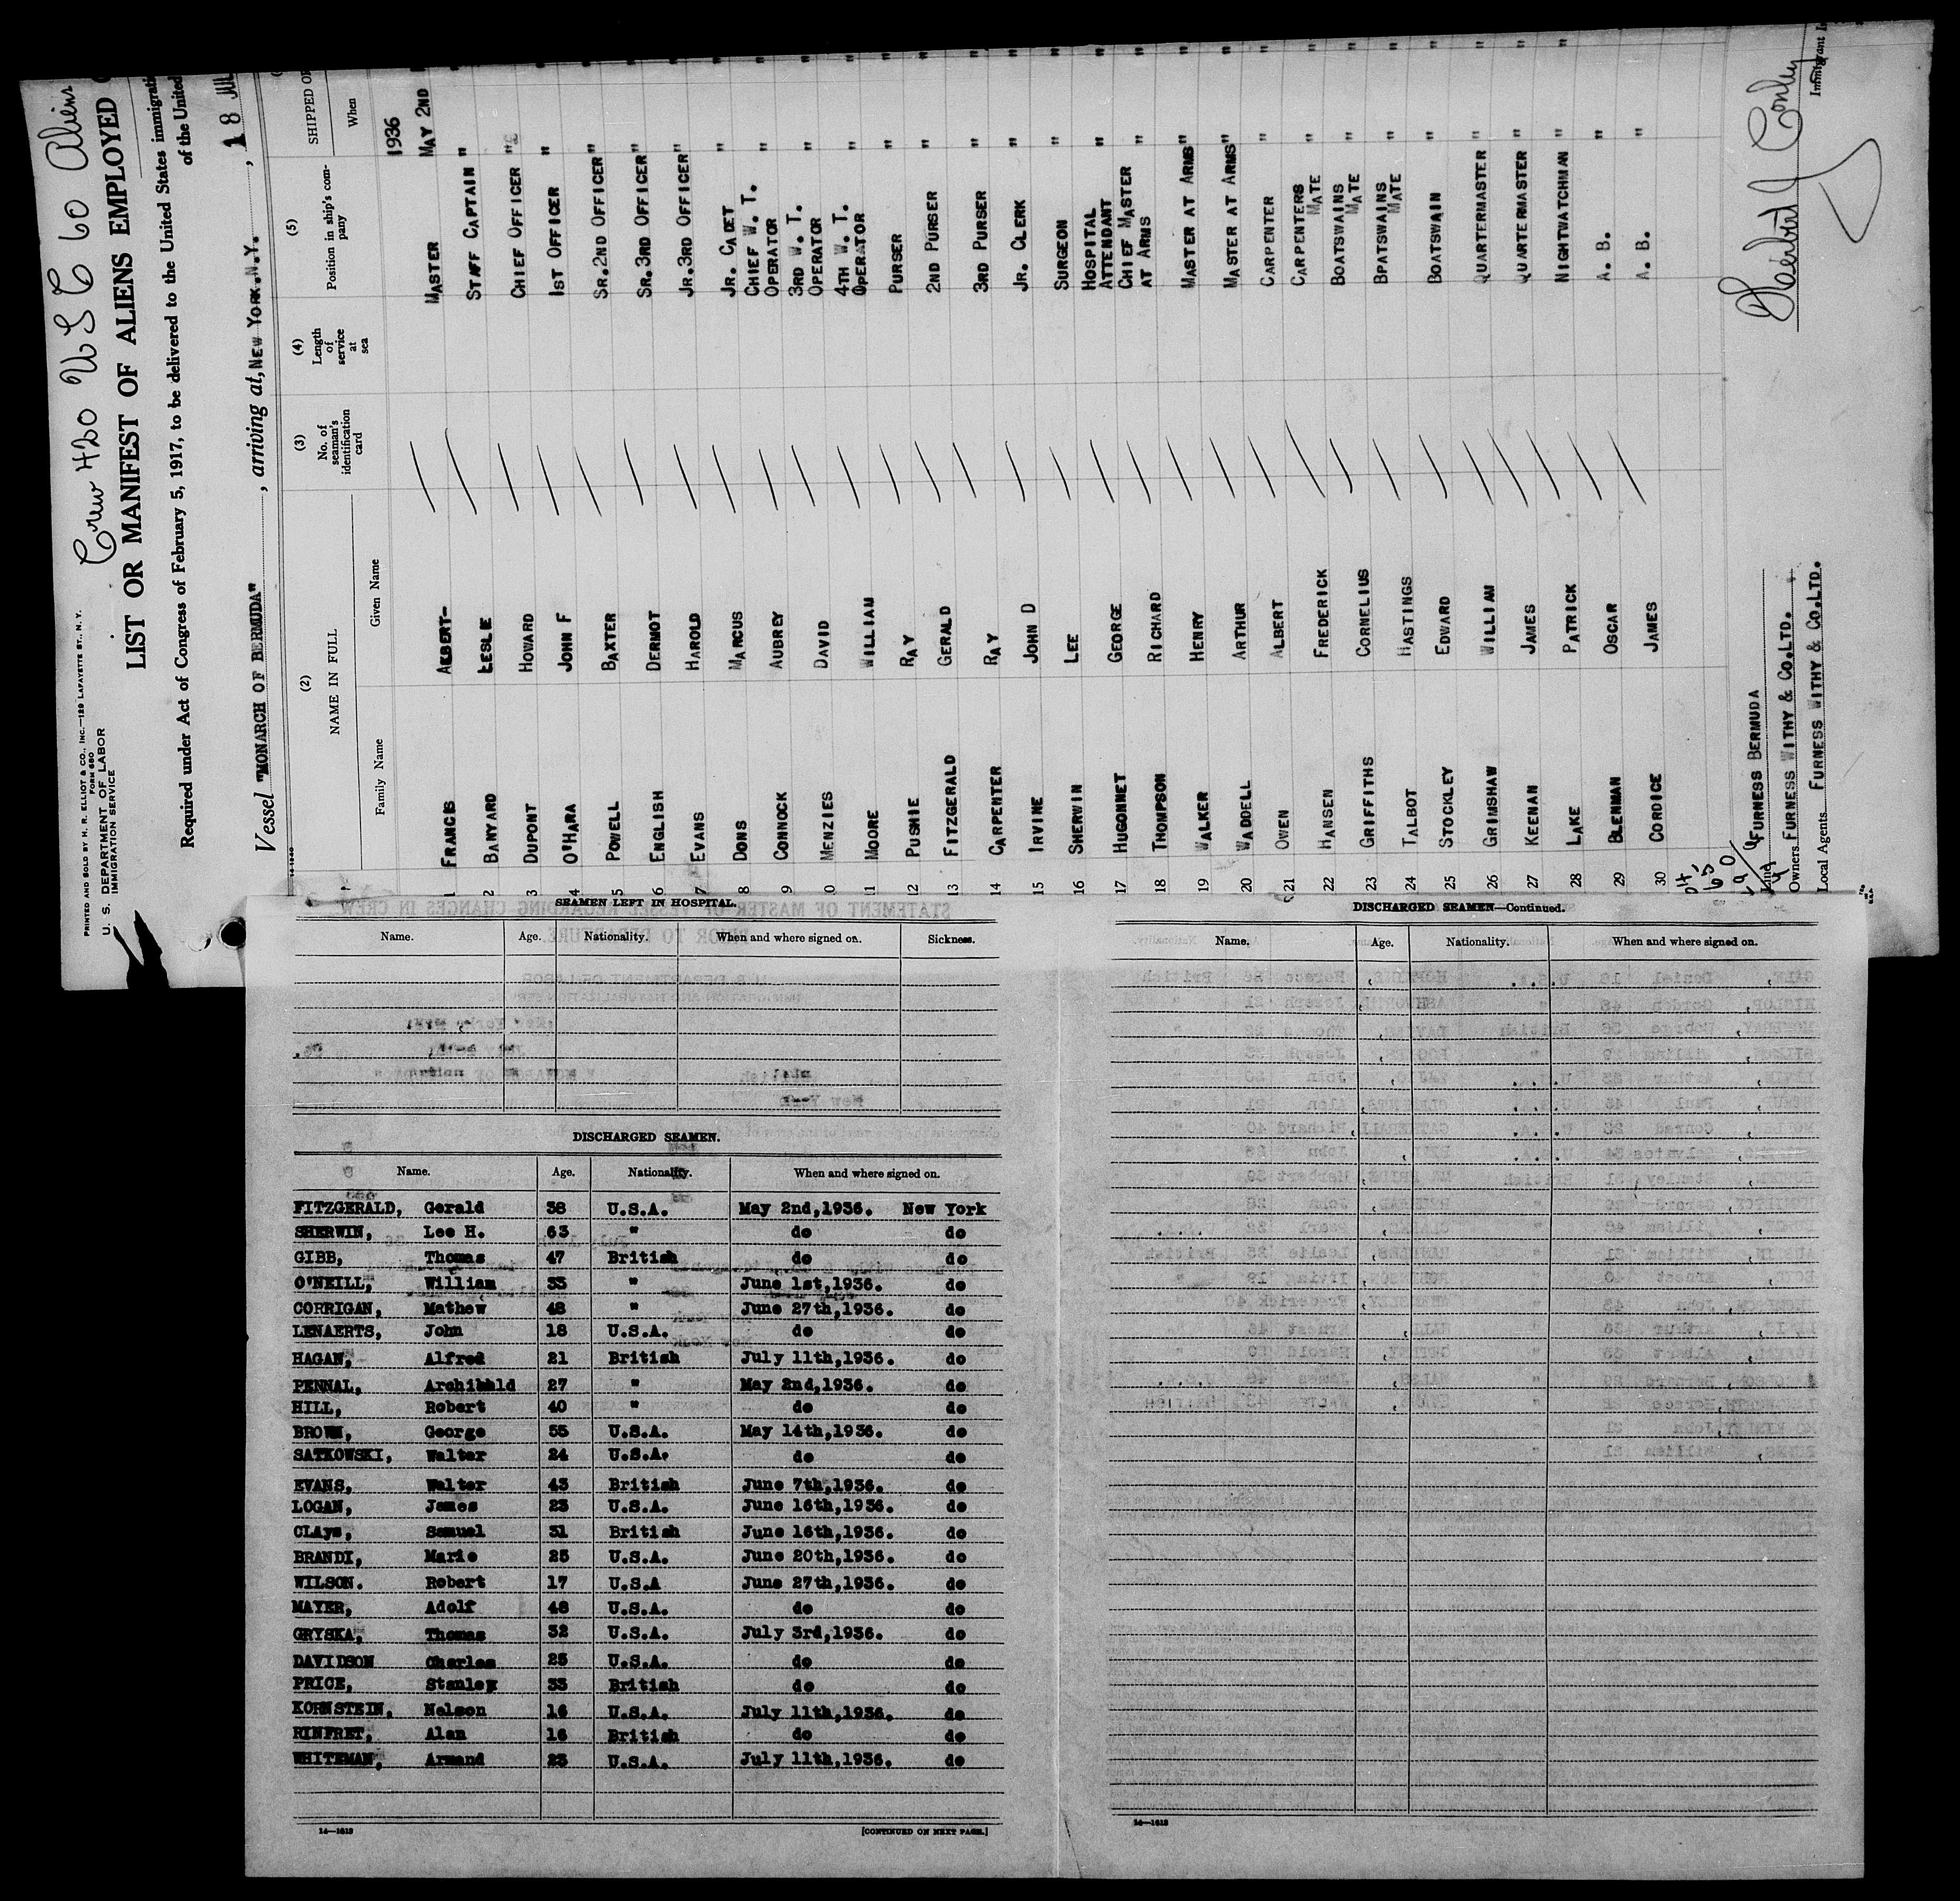 Crew 420 USC 60 Aliens
PRINTED AND SOLD BY H. R. ELLIOT & CO., INC.—129 LAFAYETTE ST., N. Y.
FORM 680
U. S. DEPARTMENT OF LABOR
IMMIGRATION SERVICE
LIST OR MANIFEST OF ALIENS EMPLOYED
Required under Act of Congress of February 5, 1917, to be delivered to the United States immigrati
of the United
Vessel "MONARCH OF BERMUDA", arriving at, NEW YORK.N.Y., 18 JUL
14-1240
(2) (3) (4) (5)
NAME IN FULL No. of seaman's identification card Length of service at sea Position in ship's company SHIPPED OR
Family Name Given Name When
1936
1 FRANCIS ALBERT- MASTER MAY 2ND
2 BANYARD LESLIE STAFF CAPTAIN "
3 DUPONT HOWARD CHIEF OFFICER "
4 O'HARA JOHN F 1ST OFFICER "
5 POWELL BAXTER SR.2ND OFFICER "
6 ENGLISH DERMOT SR.3RD OFFICER "
7 EVANS HAROLD JR.3RD OFFICER "
8 DONS MARCUS JR. CADET "
9 CONNOCK AUBREY CHIEF W. T. OPERATOR "
10 MENZIES DAVID 3RD W. T. OPERATOR "
11 MOORE WILLIAM 4TH W. T. OPERATOR "
12 PUSHIE RAY PURSER "
13 FITZGERALD GERALD 2ND PURSER "
14 CARPENTER RAY 3RD PURSER "
15 IRVINE JOHN D JR. CLERK "
16 SHERWIN LEE SURGEON "
17 HUGONNET GEORGE HOSPITAL ATTENDANT "
18 THOMPSON RICHARD CHIEF MASTER AT ARMS "
19 WALKER HENRY MASTER AT ARMS "
20 WADDELL ARTHUR MASTER AT ARMS "
21 OWEN ALBERT CARPENTER "
22 HANSEN FREDERICK CARPENTERS MATE "
23 GRIFFITHS CORNELIUS BOATSWAINS MATE "
24 TALBOT HASTINGS BPATSWAINS MATE "
25 STOCKLEY EDWARD BOATSWAIN "
26 GRIMSHAW WILLIAM QUARTERMASTER "
27 KEENAN JAMES QUARTERMASTER "
28 LAKE PATRICK NIGHTWATCHMAN "
29 BLENMAN OSCAR A. B. "
30 CORDICE JAMES A. B. "
Line FURNESS BERMUDA
Owners FURNESS WITHY & CO.LTD.
Local Agents FURNESS WITHY & CO.LTD.
Herbert J Conley
Immigrant I
SEAMEN LEFT IN HOSPITAL.
Name. Age. Nationality. When and where signed on. Sickness.
DISCHARGED SEAMEN.
Name. Age. Nationality. When and where signed on.
FITZGERALD, Gerald 38 U.S.A. May 2nd,1936. New York
SHERWIN, Lee H. 63 " do do
GIBB, Thomas 47 British do do
O'NEILL, William 33 " June 1st,1936. do
CORRIGAN, Mathew 48 " June 27th,1936. do
LENAERTS, John 18 U.S.A. do do
HAGAN, Alfred 21 British July 11th,1936. do
PENNAL, Archibald 27 " May 2nd,1936. do
HILL, Robert 40 " do do
BROWN, George 55 U.S.A. May 14th,1936. do
SATKOWSKI, Walter 24 U.S.A. do do
EVANS, Walter 43 British June 7th,1936. do
LOGAN, James 23 U.S.A. June 16th,1936. do
CLAys, Samuel 31 British June 16th,1936. do
BRANDI, Marie 25 U.S.A. June 20th,1936. do
WILSON. Robert 17 U.S.A June 27th,1936. do
MAYER, Adolf 48 U.S.A. do do
GRYSKA, Thomas 32 U.S.A. July 3rd,1936. do
DAVIDSON Charles 25 U.S.A. do do
PRICE, Stanley 33 British do do
KORNSTEIN, Nelson 16 U.S.A. July 11th,1936. do
RINFRET, Alan 16 British do do
WHITEMAN, Armand 23 U.S.A. July 11th,1936. do
14—1613 [CONTINUED ON NEXT PAGE.]
DISCHARGED SEAMEN—Continued.
Name. Age. Nationality. When and where signed on.
14—1613